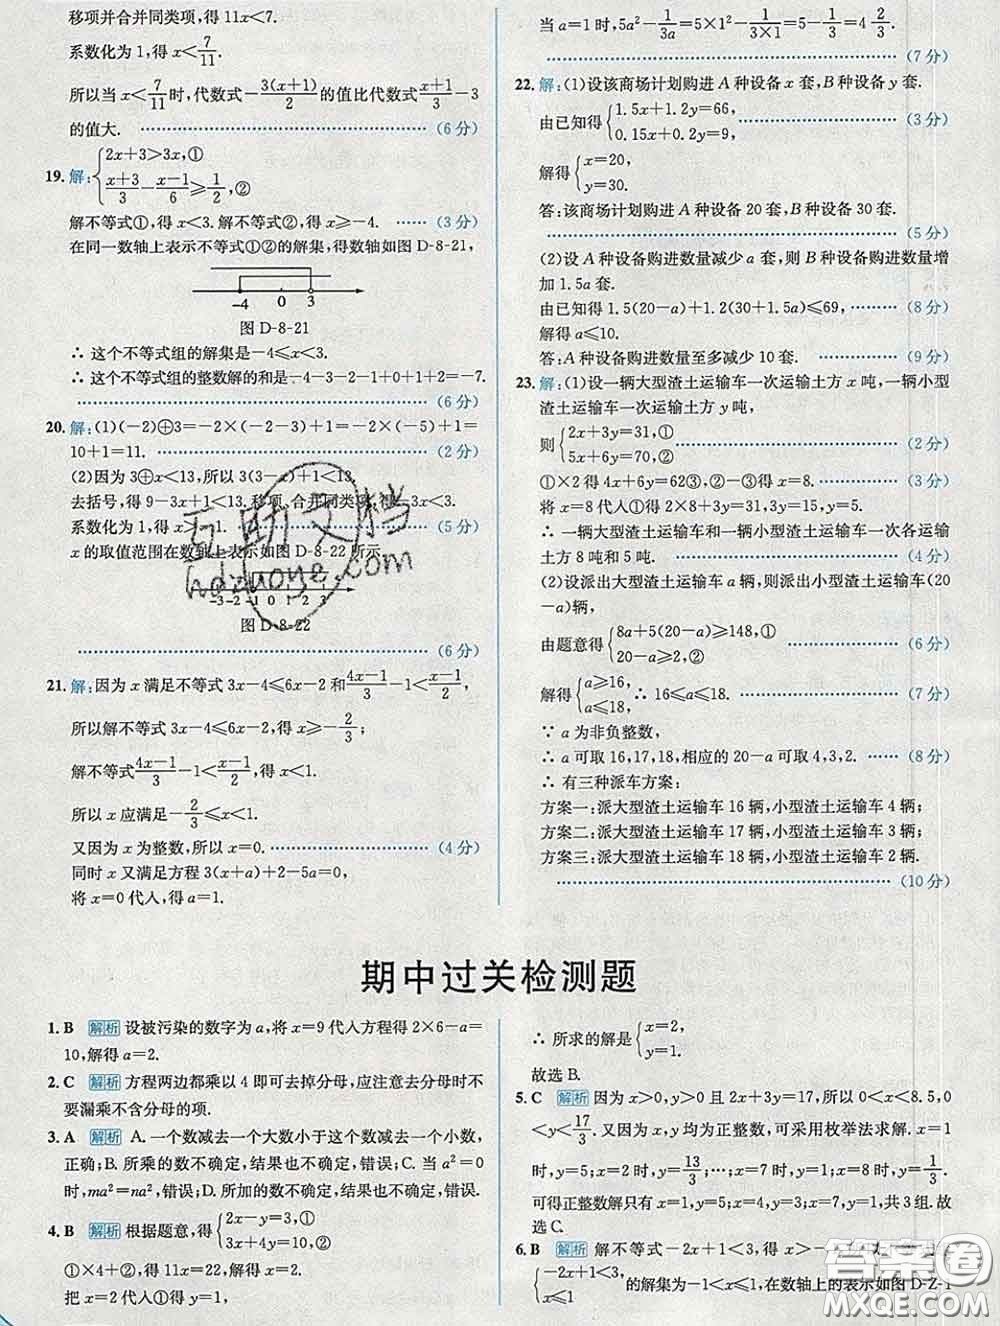 移项并合并同类项,得 11x<7.
系数化为 1,得 x<7/11.
所以当 x<7/11 时,代数式 -3(x+1)/2 的值比代数式 x/3 -3
的值大. (6 分)
19. 解: {2x+3>3x,①
(x+3)/3-(x-1)/6≥1/2,②
解不等式①,得 x<3. 解不等式②,得 x≥-4. (3 分)
在同一数轴上表示不等式①②的解集,得数轴如图 D-8-21,
-4 0 3
图 D-8-21
∴ 这个不等式组的解集是-4≤x<3.
∴ 这个不等式组的整数解的和是-4-3-2-1+0+1+2=-7.
(6 分)
20. 解:(1)(-2)⊕3=-2×(-2-3)+1=-2×(-5)+1=
10+1=11. (2 分)
(2)因为 3⊕x<13,所以 3(3-x)+1<13,
去括号,得 9-3x+1<13,移项、合并同类项,得-3x<3.
系数化为 1,得 x>-1. (5 分)
x 的取值范围在数轴上表示如图 D-8-22 所示.
-3 -2 -1 0 1 2 3
图 D-8-22
(6 分)
21. 解:因为 x 满足不等式 3x-4≤6x-2 和 (4x-1)/3-1<(x-1)/2,
所以解不等式 3x-4≤6x-2,得 x≥-2/3;
解不等式 (4x-1)/3-1<(x-1)/2,得 x<1.
所以 x 应满足-2/3≤x<1.
又因为 x 为整数,所以 x=0. (4 分)
同时 x 又满足方程 3(x+a)+2-5a=0,
将 x=0 代入,得 a=1.
当 a=1 时,5a²-1/(3a)=5×1²-1/(3×1)=5-1/3=4 2/3.
(7 分)
22. 解:(1)设该商场计划购进 A 种设备 x 套,B 种设备 y 套.
由已知得{1.5x+1.2y=66,
0.15x+0.2y=9, (3 分)
解得{x=20,
y=30.
答:该商场计划购进 A 种设备 20 套,B 种设备 30 套.
(5 分)
(2)设 A 种设备购进数量减少 a 套,则 B 种设备购进数量增
加 1.5a 套.
由已知得 1.5(20-a)+1.2(30+1.5a)≤69, (8 分)
解得 a≤10.
答:A 种设备购进数量至多减少 10 套. (9 分)
23. 解:(1)设一辆大型渣土运输车一次运输土方 x 吨,一辆小型
渣土运输车一次运输土方 y 吨,
则{2x+3y=31,①
5x+6y=70,② (2 分)
①×2 得 4x+6y=62③,②-③得 x=8. (3 分)
将 x=8 代入①得 2×8+3y=31,3y=15,y=5.
∴ 一辆大型渣土运输车和一辆小型渣土运输车一次各运输
土方 8 吨和 5 吨. (4 分)
(2)设派出大型渣土运输车 a 辆,则派出小型渣土运输车(20
-a)辆,
由题意得{8a+5(20-a)≥148,①
20-a≥2,② (6 分)
解得{a≥16,
a≤18, ∴ 16≤a≤18. (7 分)
∵ a 为非负整数,
∴ a 可取 16,17,18,相应的 20-a 可取 4,3,2. (8 分)
∴ 有三种派车方案:
方案一:派大型渣土运输车 16 辆,小型渣土运输车 4 辆;
方案二:派大型渣土运输车 17 辆,小型渣土运输车 3 辆;
方案三:派大型渣土运输车 18 辆,小型渣土运输车 2 辆.
(10 分)
期中过关检测题
1. B 解析 设被污染的数字为 a,将 x=9 代入方程得 2×6-a=
10,解得 a=2.
2. C 解析 方程两边都乘以 4 即可去掉分母,应注意去分母时不
要漏乘不含分母的项.
3. A 解析 A. 一个数减去一个大数小于这个数减去一个小数,
正确;B. 所乘的数不确定,结果也不确定,错误;C. 当 a²=0
时,ma²=na²,错误;D. 所加的数不确定,结果也不确定,错误.
4. B 解析 根据题意,得{2x-y=3,①
3x+4y=10.②
①×4+②,得 11x=22,解得 x=2.
把 x=2 代入①得 y=1,
∴ 所求的解是{x=2,
y=1.
故选 B.
5. C 解析 因为 x>0,y>0 且 2x+3y=17,所以 0<x<8.5,0
<y<17/3. 又因为 x,y 均为正整数,可采用枚举法求解. x=1
时,y=5;x=2 时,y=13/3;…;x=7 时,y=1;x=8 时,y=1/3.
可得正整数解只有 x=1,y=5;x=4,y=3;x=7,y=1,共 3 组. 故
选 C.
6. B 解析 解不等式-2x+1<3,得 x>-
{-2x+1<3,
x≤1 的解集为-1<x≤1,在数轴上的表示如图 D-Z-1
互助文档
hdzuoye.com
答案圈
MXQE.COM